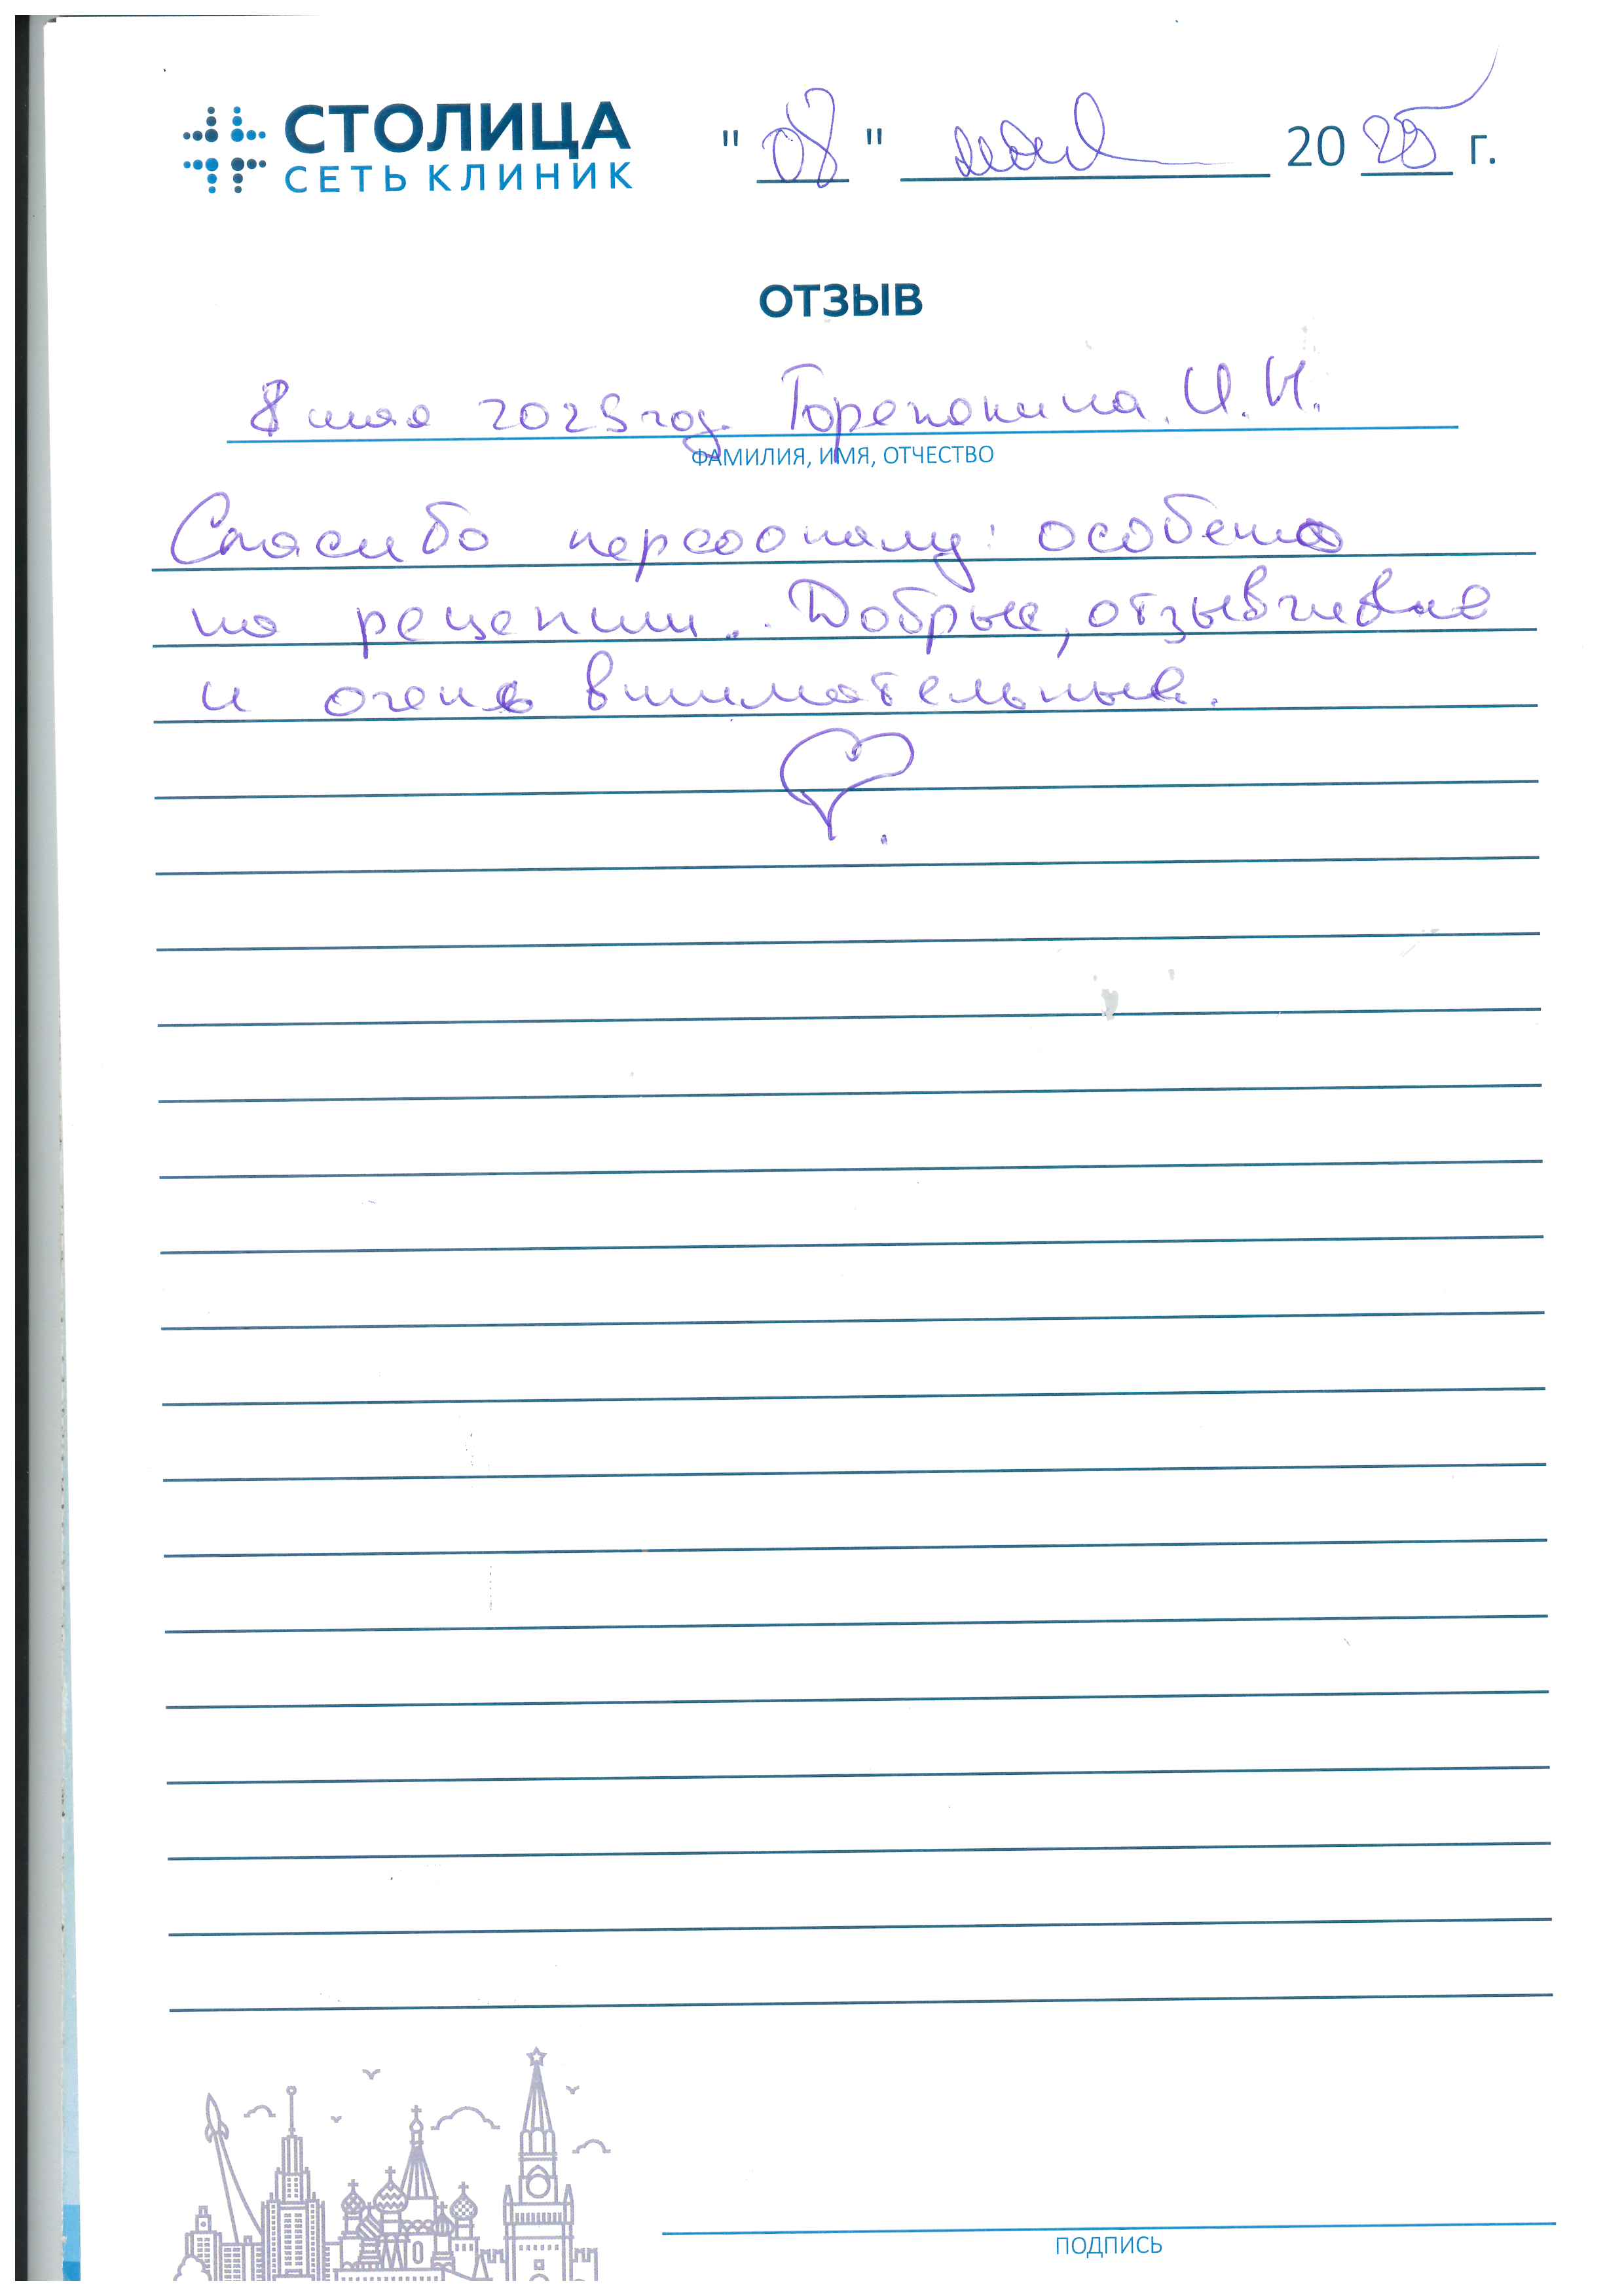 СТОЛИЦА
СЕТЬ КЛИНИК
" 08 " мая 2025 г.
ОТЗЫВ
8 мая 2025 год. И. И.
ФАМИЛИЯ, ИМЯ, ОТЧЕСТВО
Спасибо персооналу: особено
на рецепшии. Добрые, отзывчивые
и очень внимательные.
ПОДПИСЬ